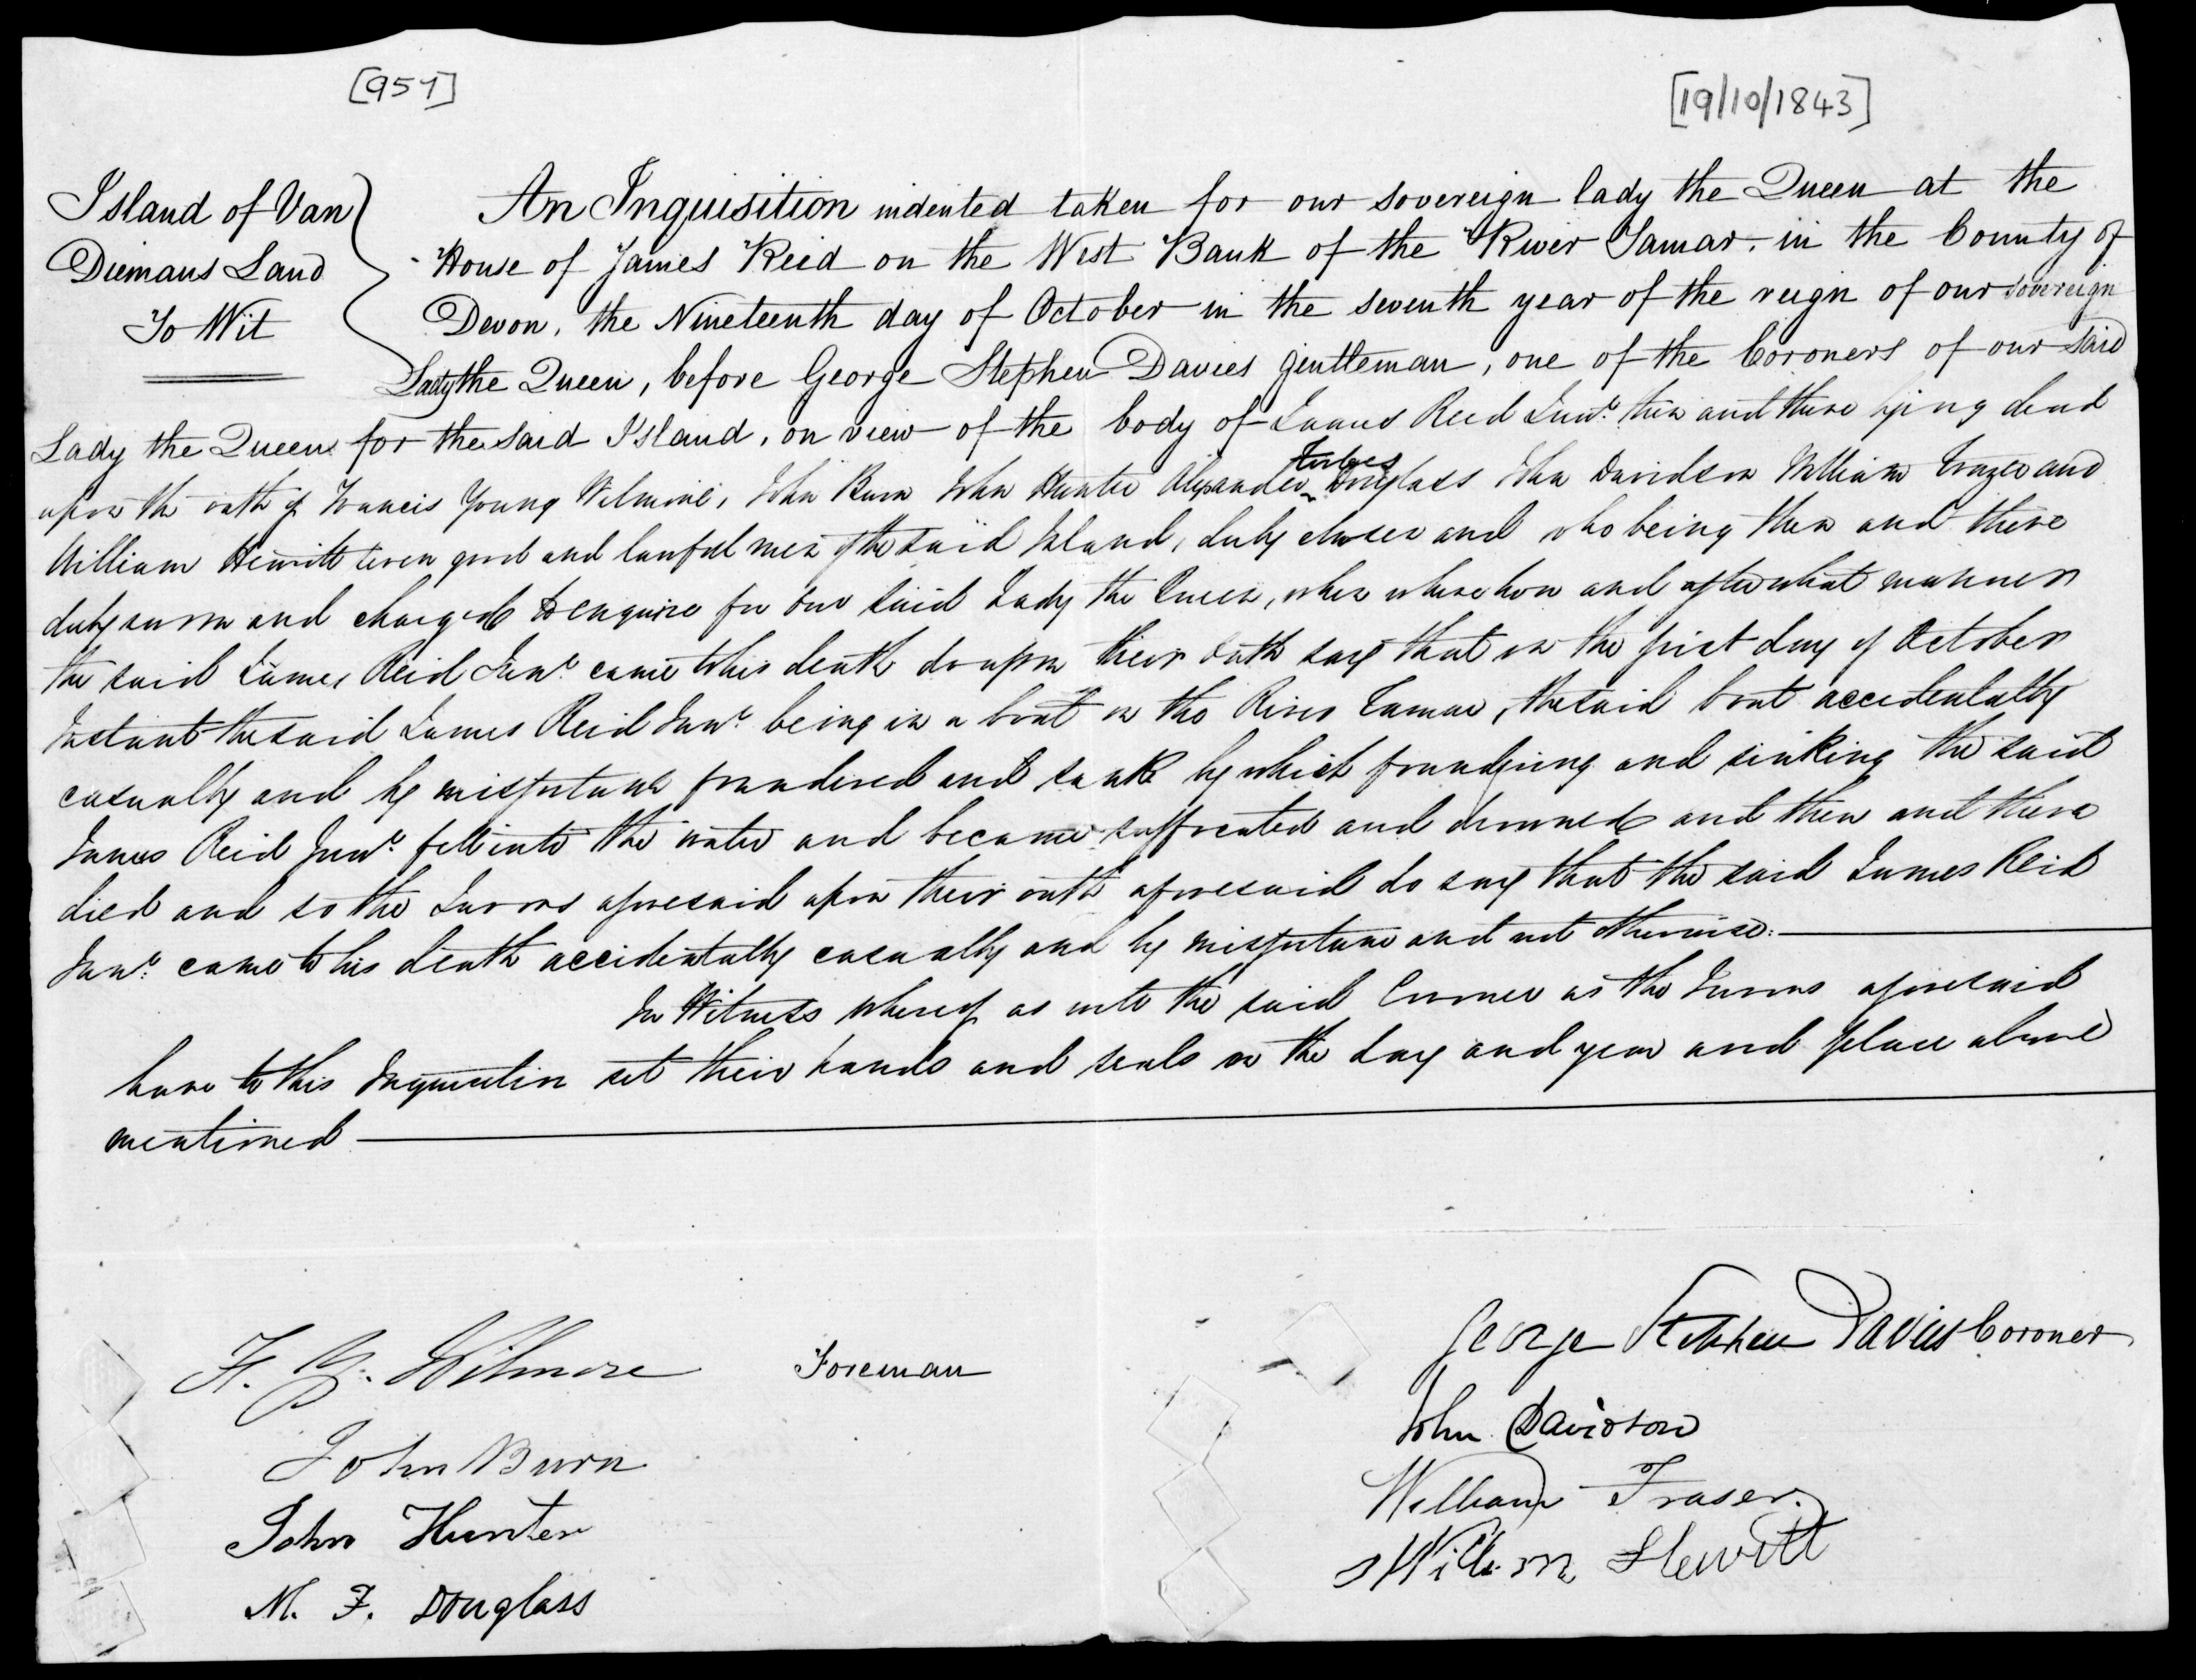 [957]
[19/10/1843]
Island of Van
Diemans Land
To Wit
An Inquisition indented taken for our sovereign lady the Queen at the
House of James Reid on the West Bank of the River Tamar, in the County of
Devon, the Nineteenth day of October in the seventh year of the reign of our sovereign
Lady the Queen, before George Stephen Davies gentleman, one of the Coroners of our said
Lady the Queen for the said Island, on view of the body of James Reid Junr. then and there lying dead
upon the oath of Francis Young Wilmore, John Burn John Hunter Alexander Forbes Douglass John Davidson William Frazer and
William Hewitt seven good and lawful men of the said Island, duly chosen and who being then and there
duly sworn and charged to enquire for our said Lady the Queen, when where how and after what manner
the said James Reid Junr. came to his death do upon their oath say that on the first day of October
Instant the said James Reid Junr. being in a boat on the River Tamar, the said boat accidentally
casually and by misfortune foundered and sank by which foundering and sinking the said
James Reid Junr. fell into the water and became suffocated and drowned and then and there
died and so the Jurors aforesaid upon their oath aforesaid do say that the said James Reid
Junr. came to his death accidentally casually and by misfortune and not otherwise.
In Witness whereof as well the said Coroner as the Jurors aforesaid
have to this Inquisition set their hands and seals on the day and year and place above
mentioned
F. Y. Wilmore Foreman
John Burn
John Hunter
M. F. Douglass
George Stephen Davies Coroner
John Davidson
William Fraser.
William Hewitt